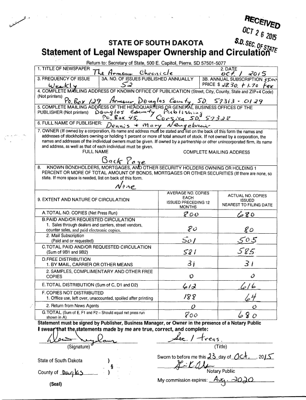 RECEIVED
OCT 26 2015
S.D. SEC. OF STATE
STATE OF SOUTH DAKOTA
Statement of Legal Newspaper Ownership and Circulation
Return to: Secretary of State, 500 E. Capitol, Pierre, SD 57501-5077
1. TITLE OF NEWSPAPER
The Armour Chronicle
2. DATE
Oct 1 2015
3. FREQUENCY OF ISSUE
Weekly
3A. NO. OF ISSUES PUBLISHED ANNUALLY
52
3B. ANNUAL SUBSCRIPTION
PRICE $
4. COMPLETE MAILING ADDRESS OF KNOWN OFFICE OF PUBLICATION (Street, City, County, State and ZIP+4 Code)
(Not printers)
Po Box 129 Armour Douglas County, SD 57313-0129
5. COMPLETE MAILING ADDRESS OF THE HEADQUARTERS OR GENERAL BUSINESS OFFICES OF THE
PUBLISHER (Not printer)
Douglas County Publishing
Po Box 45, Corsica, SD 57328
6. FULL NAME OF PUBLISHER:
Dennis & Mary
7. OWNER (If owned by a corporation, its name and address must be stated and list on the back of this form the names and
addresses of stockholders owning or holding 1 percent or more of total amount of stock. If not owned by a corporation, the
names and addresses of the individual owners must be given. If owned by a partnership or other unincorporated firm, its name
and address, as well as that of each individual must be given.
FULL NAME
COMPLETE MAILING ADDRESS
Back Page
8. KNOWN BONDHOLDERS, MORTGAGES, AND OTHER SECURITY HOLDERS OWNING OR HOLDING 1
PERCENT OR MORE OF TOTAL AMOUNT OF BONDS, MORTGAGES OR OTHER SECURITIES (If there are none, so
state. If more space is needed, list on back of this form.
None
9. EXTENT AND NATURE OF CIRCULATION
AVERAGE NO. COPIES
EACH
ISSUED PRECEDING 12
MONTHS
ACTUAL NO. COPIES
ISSUED
NEAREST TO FILING DATE
A. TOTAL NO. COPIES (Net Press Run)
800
680
B. PAID AND/OR REQUESTED CIRCULATION
1. Sales through dealers and carriers, street vendors,
counter sales, and paid electronic copies.
80
80
2. Mail Subscription
(Paid and or requested)
501
505
C. TOTAL PAID AND/OR REQUESTED CIRCULATION
(Sum of 9B1 and 9B2)
581
585
D. FREE DISTRIBUTION
1. BY MAIL, CARRIER OR OTHER MEANS
31
31
2. SAMPLES, COMPLIMENTARY AND OTHER FREE
COPIES
0
0
E. TOTAL DISTRIBUTION (Sum of C, D1 and D2)
612
616
F. COPIES NOT DISTRIBUTED
1. Office use, left over, unaccounted, spoiled after printing
188
64
2. Return from News Agents
0
0
G. TOTAL (Sum of E, F1 and F2 – Should equal net press run
shown in A)
800
680
Statement must be signed by Publisher, Business Manager, or Owner in the presence of a Notary Public
I swear that the statements made by me are true, correct, and complete:
(Signature)
Sec / Treas.
(Title)
State of South Dakota )
)§
County of Douglas )
Sworn to before me this 23 day of Oct. 2015
Notary Public
My commission expires: Aug. 2020
(Seal)